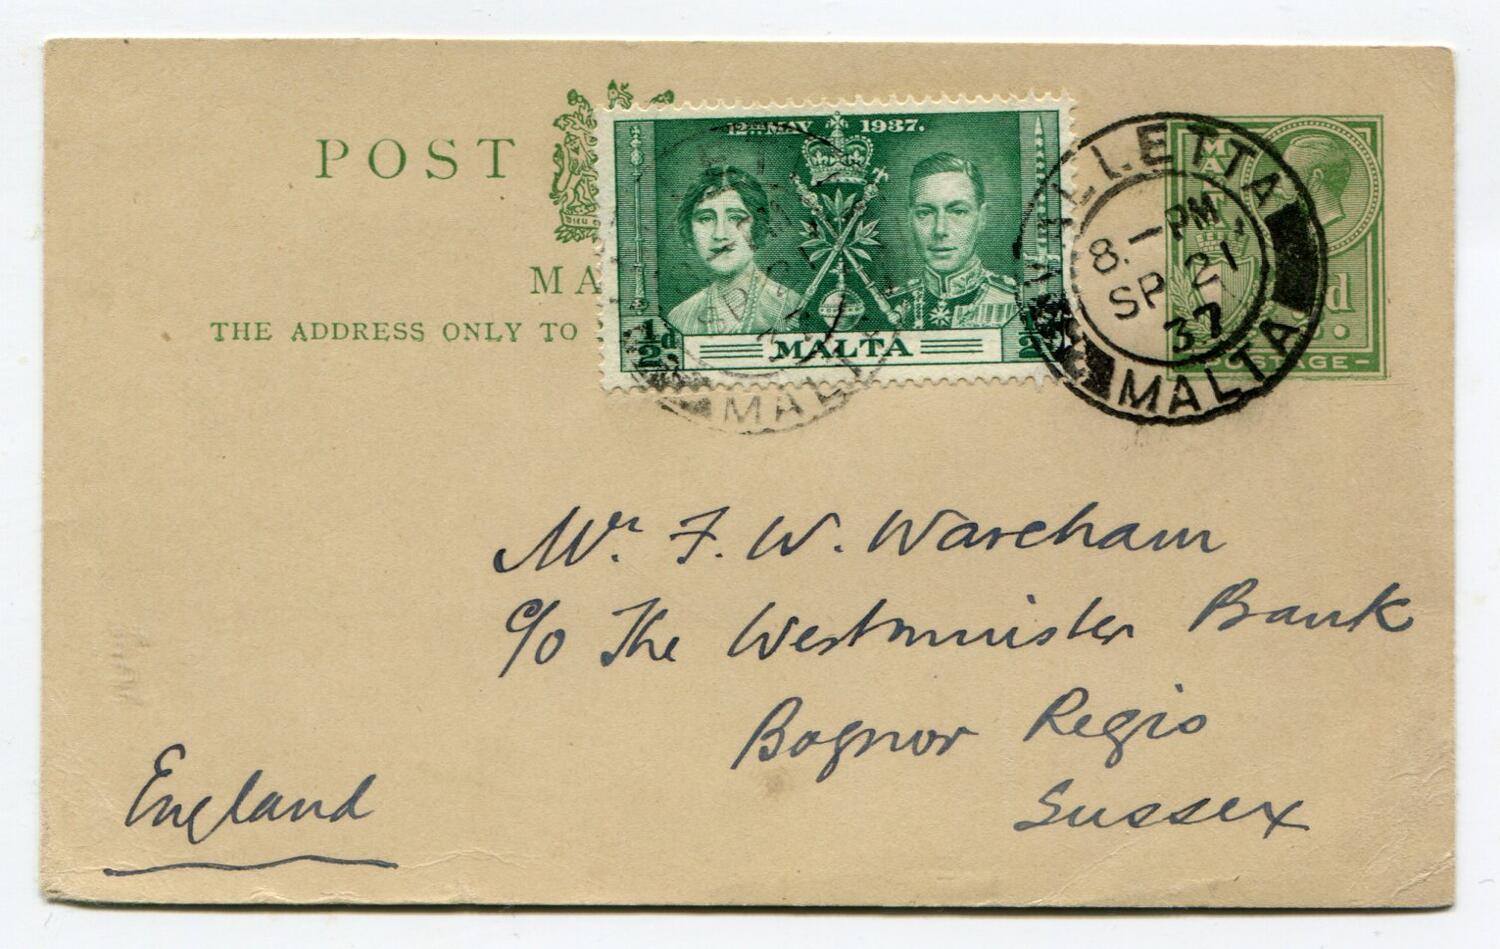 POST
MA
THE ADDRESS ONLY TO
12TH MAY 1937.
½d MALTA ½
VALLETTA
8.—PM
SP 21
37
MALTA
MALTA
POSTAGE
Mr. F. W. Wareham
c/o The Westminster Bank
Bognor Regis
Sussex
England